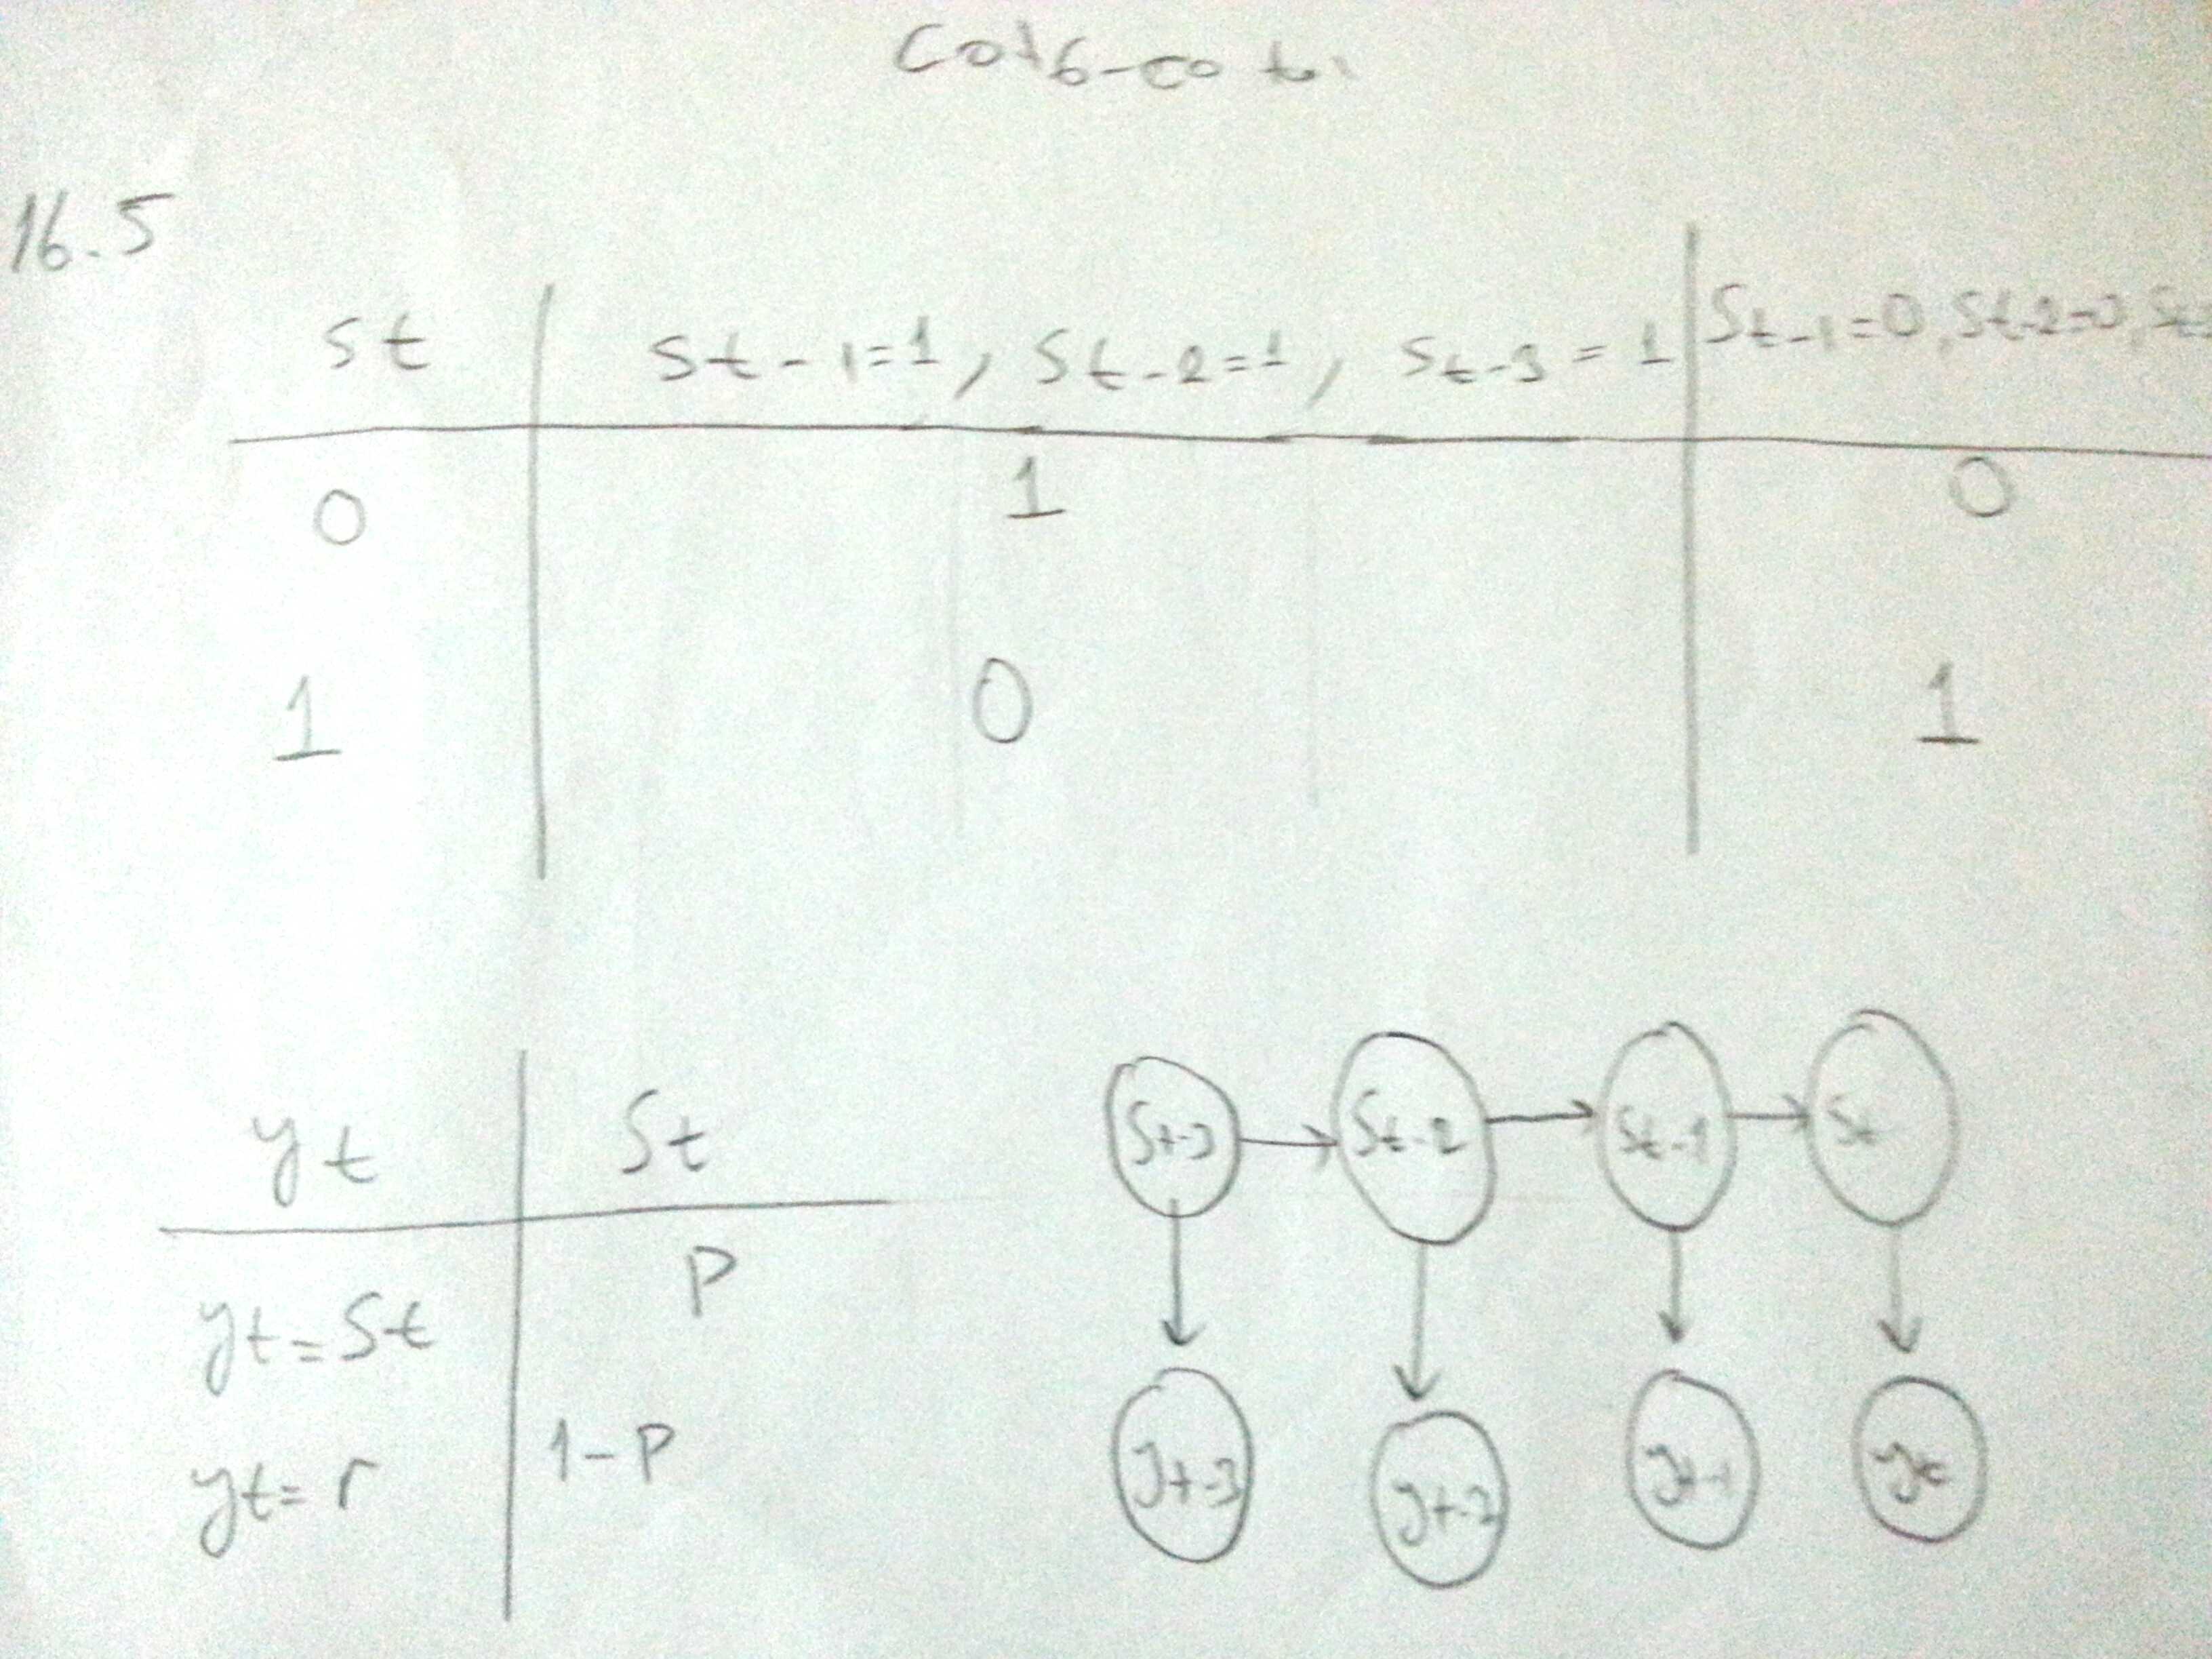 16.5
St | St-1=1, St-2=1, St-3=1 | St-1=0, St-2=0, St
0 1 0
1 0 1
yt St
yt=St P
yt=r 1-P
St-3 St-2 St-1 St
yt-3 yt-2 yt-1 yt